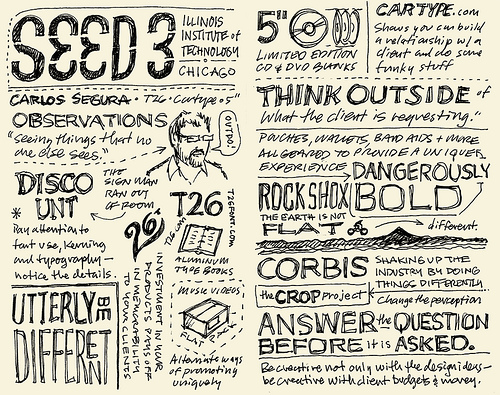 SEED 3
ILLINOIS
INSTITUTE of
TECHNOLOGY
CHICAGO
CARLOS SEGURA • T26 • Cartype • 5"
OBSERVATIONS
"seeing things that no
one else sees."
OUTDO!
DISCO
UNT
THE
SIGN MAN
RAN OUT
OF ROOM
* Pay attention to
font use, kerning
and typography —
notice the details.
UTTERLY BE
DIFFERENT
26.
T26
T26FONT.COM
T26.com
ALUMINUM
TYPE BOOKS
INVESTMENT IN YOUR
PRODUCTS PAYS OFF
IN MEMORABILITY
TO YOUR CLIENTS
MUSIC VIDEOS
FLAT
Alternate ways
of promoting
uniquely
5"
LIMITED EDITION
CD & DVD BLANKS
CARTYPE.com
Shows you can build
a relationship w/ a
client and do some
funky stuff
THINK OUTSIDE of
what the client is requesting."
POUCHES, WALLETS, BAND AIDS + MORE
ALL GEARED TO PROVIDE A UNIQUER
EXPERIENCE
DANGEROUSLY
BOLD
ROCK SHOX
THE EARTH IS NOT
FLAT
different.
CORBIS
SHAKING UP THE
INDUSTRY BY DOING
THINGS DIFFERENTLY.
the CROP project
Change the perception
ANSWER the QUESTION
BEFORE it is ASKED.
Be creative not only with the design ideas —
be creative with client budgets & money.